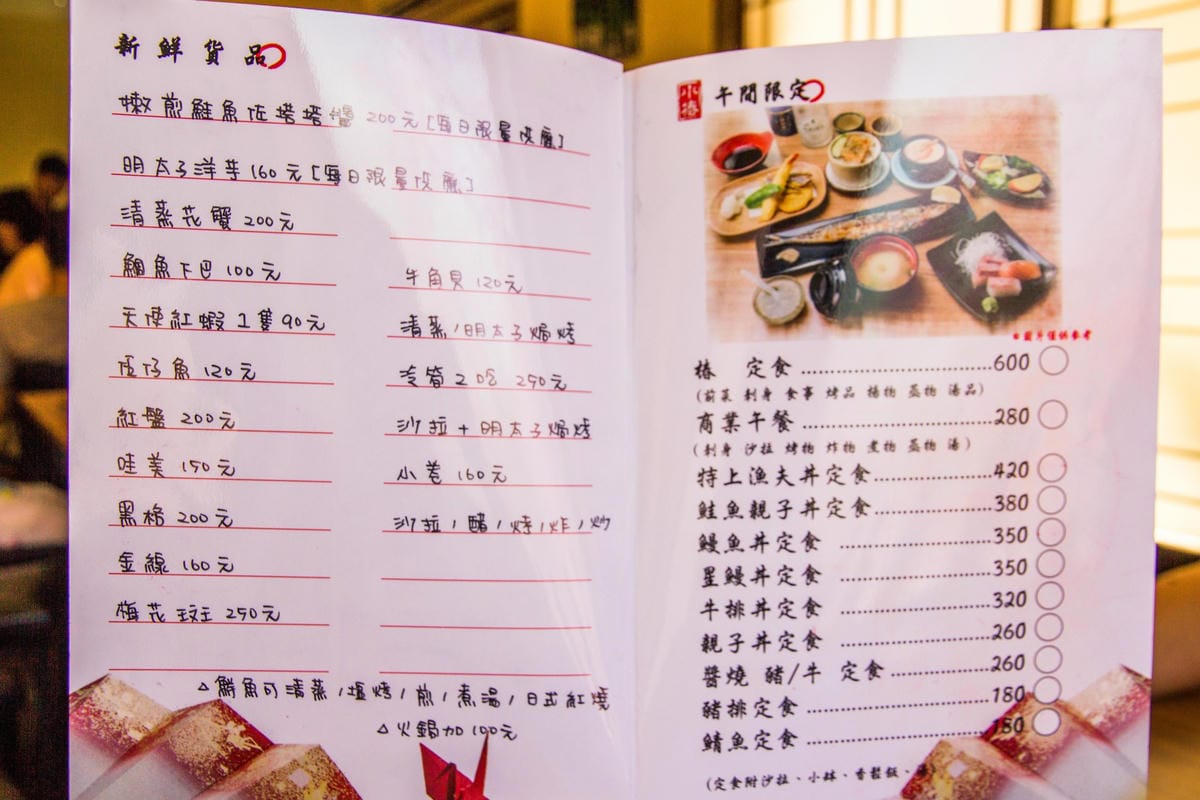 新鮮貨品
嫩煎鮭魚佐塔塔醬 200元[每日限量供應]
明太子洋芋160元[每日限量供應]
清蒸花蟹 200元
鯛魚下巴 100元
天使紅蝦 1隻90元
午仔魚 120元
紅盤 200元
哇美 150元
黑格 200元
金線 160元
梅花 250元
牛角貝 120元
清蒸/明太子焗烤
冷筍2吃 250元
沙拉+明太子焗烤
小卷 160元
沙拉/醋/烤/炸/炒
△鮮魚可清蒸/塩烤/煎/煮湯/日式紅燒
△火鍋加100元
小椿
午間限定
※圖片僅供參考
椿 定食 600
(前菜 刺身 食事 烤品 揚物 蒸物 湯品)
商業午餐 280
(刺身 沙拉 烤物 炸物 煮物 蒸物 湯)
特上漁夫丼定食 420
鮭魚親子丼定食 380
鰻魚丼定食 350
星鰻丼定食 350
牛排丼定食 320
親子丼定食 260
醬燒 豬/牛 定食 260
豬排定食 180
鯖魚定食 180
(定食附沙拉、小缽、香鬆飯、